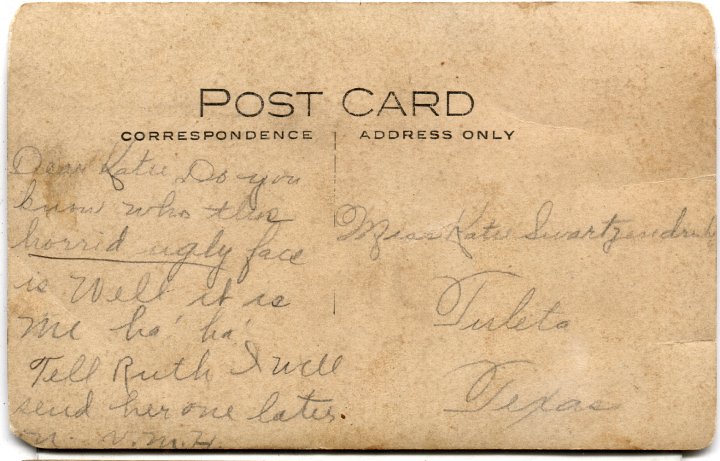 POST CARD
CORRESPONDENCE
ADDRESS ONLY
Dear Katie Do you
know who this
horrid ugly face
is Well it is
me ha! ha!
Tell Ruth I will
send her one later
V.M.
Miss Katie Swartzendrub
Tuleta
Texas